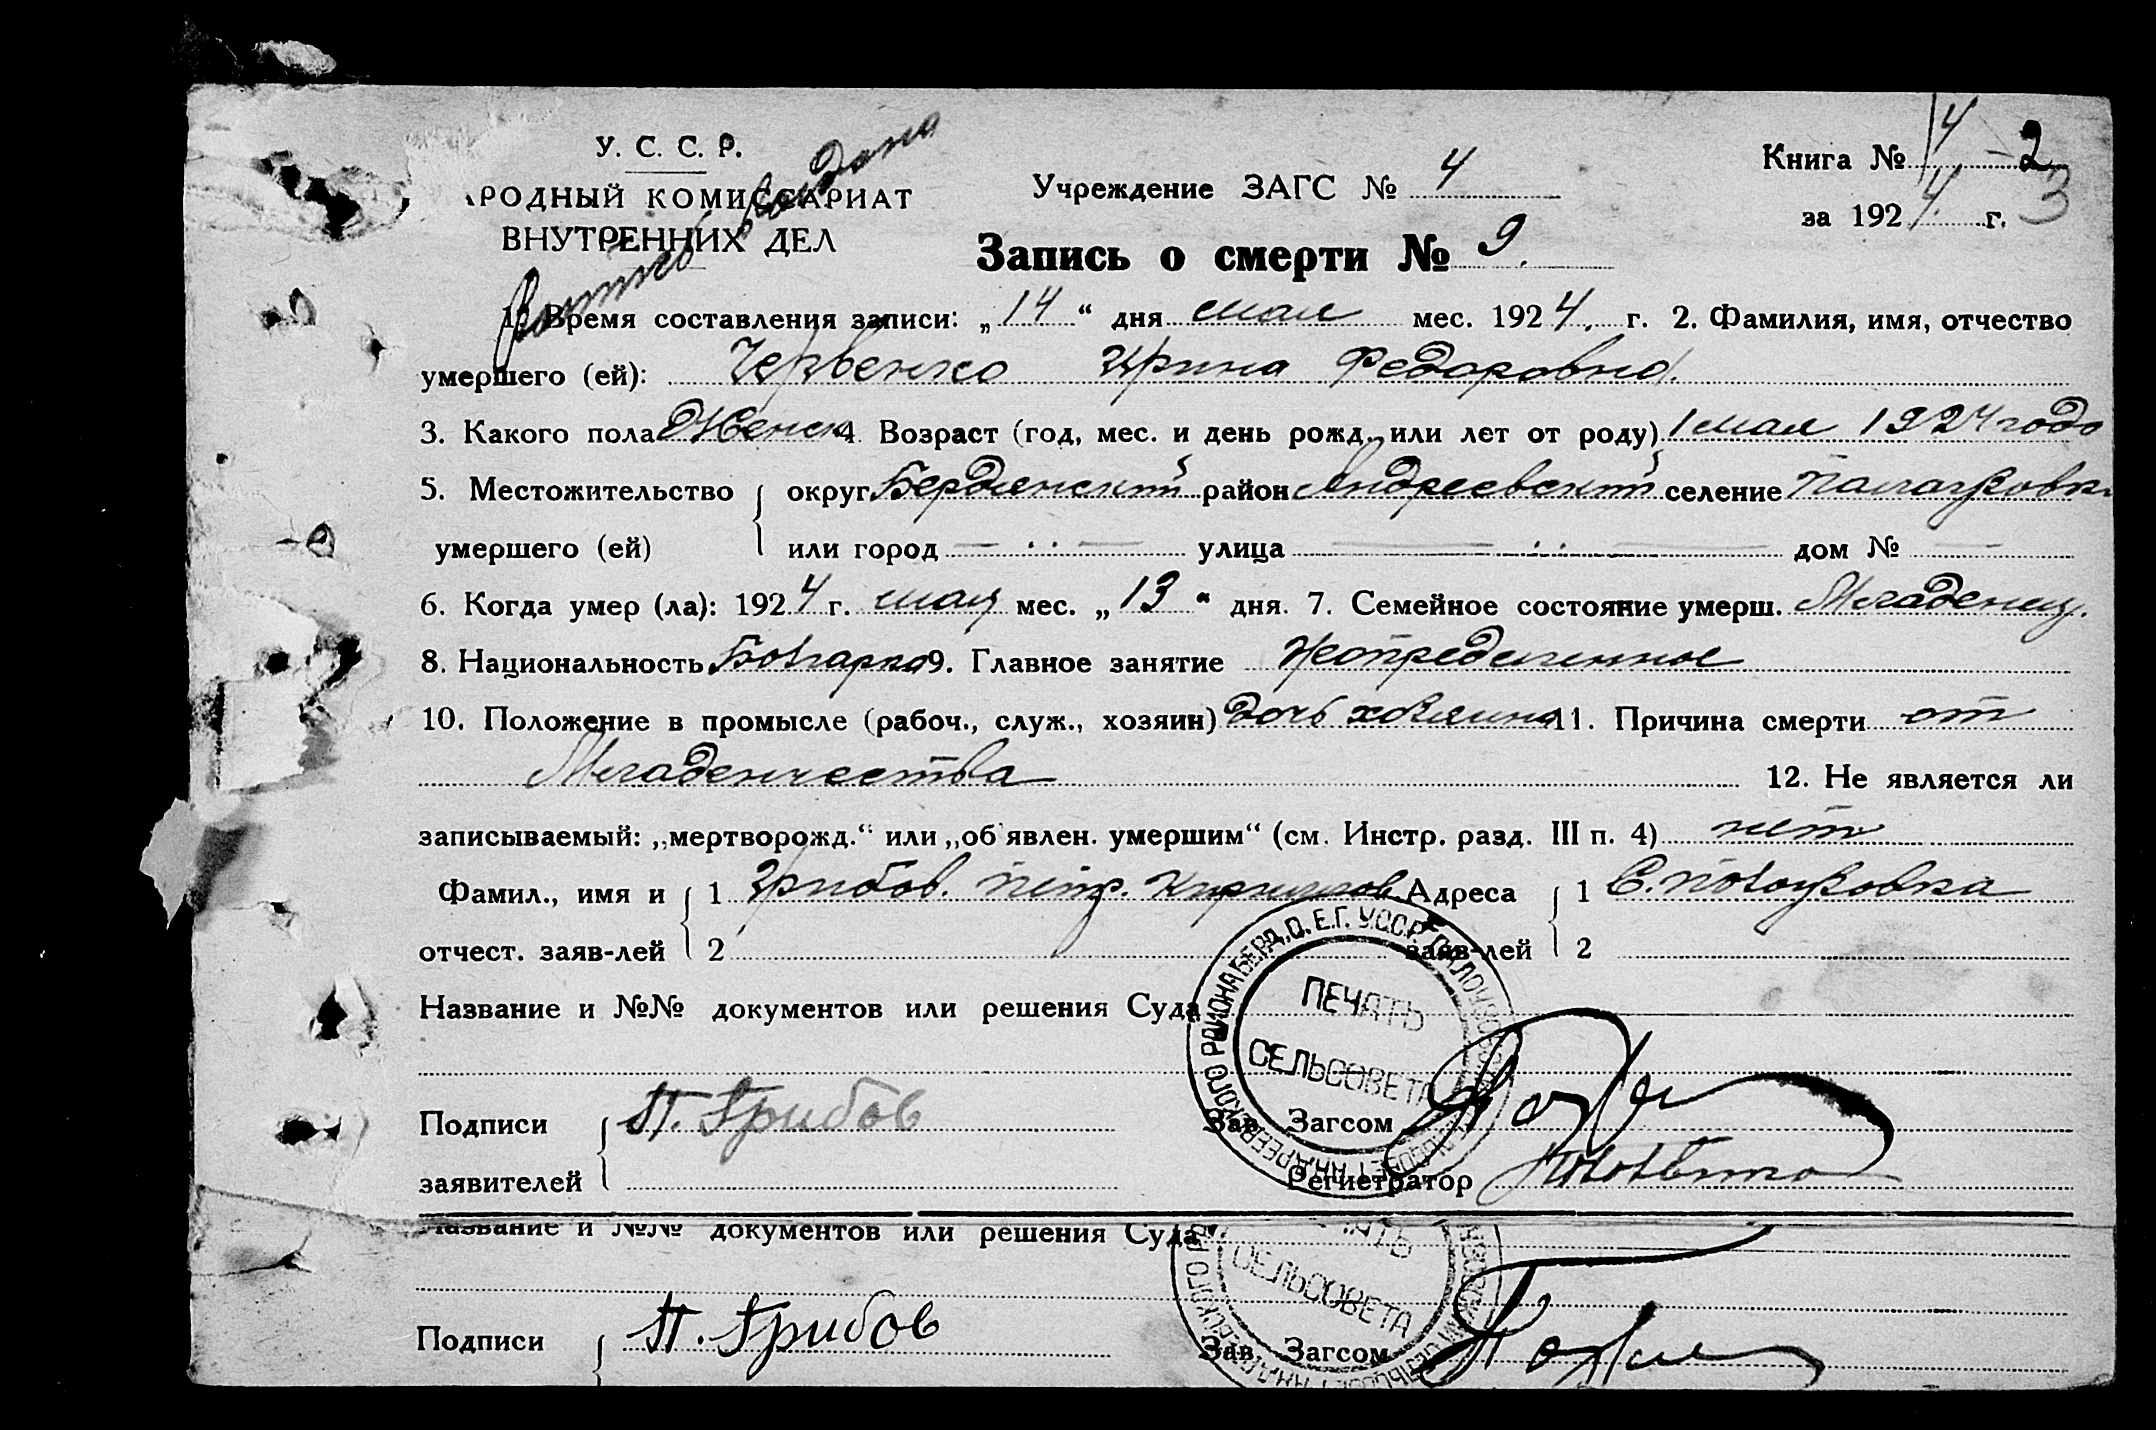 У. С. С. Р.
РОДНЫЙ КОМИССАРИАТ
ВНУТРЕННИХ ДЕЛ
Учреждение ЗАГС № 4
Книга № 4 2
за 1924 г. 3
Запись о смерти № 9.
1. Время составления записи: „14“ дня мая мес. 1924. г. 2. Фамилия, имя, отчество
умершего (ей): Червенко Ирина Федоровна.
3. Какого пола Женск 4. Возраст (год, мес. и день рожд. или лет от роду) 1 мая 1924 года
5. Местожительство округ Бердянский район Андреевский селение
умершего (ей) или город — ·· — улица — ·· — дом № —
6. Когда умер (ла): 1924 г. мая мес. „13“ дня. 7. Семейное состояние умерш. Младенец.
8. Национальность Болгарка 9. Главное занятие
10. Положение в промысле (рабоч., служ., хозяин) дочь хозяина 11. Причина смерти от
Младенчества 12. Не является ли
записываемый: „мертворожд.“ или „об'явлен. умершим“ (см. Инстр. разд. III п. 4) нет
Фамил., имя и 1 Грибов. Петр. Кириллов. Адреса 1 С. Полоузовка
отчест. заяв-лей 2 заяв-лей 2
Название и №№ документов или решения Суда
ПЕЧАТЬ
СЕЛЬСОВЕТА
Подписи П. Грибов Зав. Загсом
заявителей Регистратор
Название и №№ документов или решения Суда
СЕЛЬСОВЕТА
Подписи П. Грибов Зав. Загсом